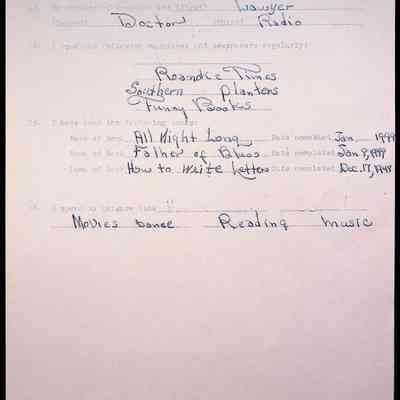 Lawyer
Doctor Radio
I read the following magazines and newspapers regularly:
Roanoke Times
Southern Planters
Funny Books
I have read the following books:
Name of Book All Night Long Date completed Jan, 1949
Name of Book Father of Blues Date completed Jan 9, 1949
Name of Book How to Write Letters Date completed Dec. 17, 1948
I spend my leisure time
Movies Dance Reading music